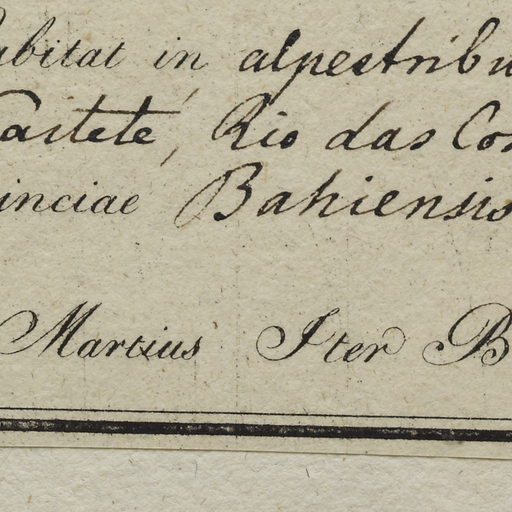 abitat in alpestribu
astete, Rio das Con
inciae Bahiensis
Martius Iter B